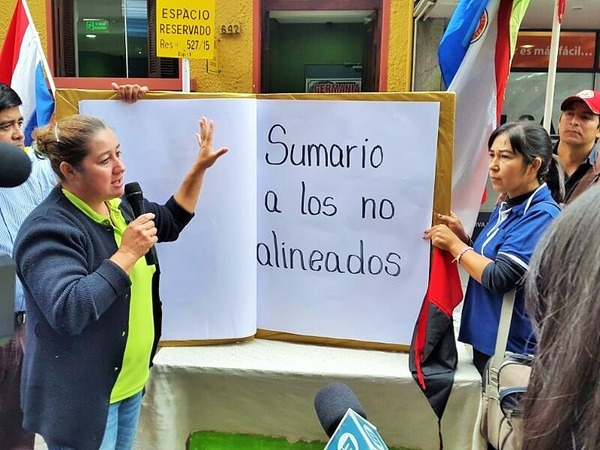 ESPACIO
RESERVADO
Res 527/15
642
GERMANIA
es más fácil...
Sumario
a los no
alineados